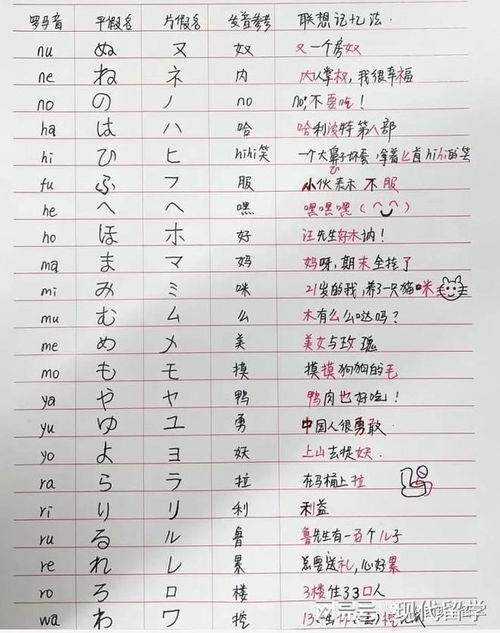 罗马音 平假名 片假名 发音参考 联想记忆法
nu ぬ ヌ 奴 又一个房奴
ne ね ネ 内 内人掌权,我很幸福
no の ノ no no,不要吃!
ha は ハ 哈 哈利波特第八部
hi ひ ヒ hihi笑 一个大鼻子坏蛋,拿着匕首hihi的笑
fu ふ フ 服 小伙表示 不服
he へ ヘ 嘿 嘿嘿嘿(^^)
ho ほ ホ 好 汪先生好木讷!
ma ま マ 妈 妈呀,期末全挂了
mi み ミ 咪 21岁的我,养了一只猫咪
mu む ム 么 木有么么哒吗?
me め メ 美 美女与玫瑰
mo も モ 摸 摸摸狗狗的毛
ya や ヤ 鸭 鸭肉也好吃!
yu ゆ ユ 勇 中国人很勇敢
yo よ ヨ 妖 上山去捉妖.
ra ら ラ 拉 在马桶上拉
ri り リ 利 利益
ru る ル 鲁 鲁先生有一百个儿子
re れ レ 累 总要送礼,心好累
ro ろ ロ 楼 3楼住33口人
wa わ ワ 挖
网易号 现代留学